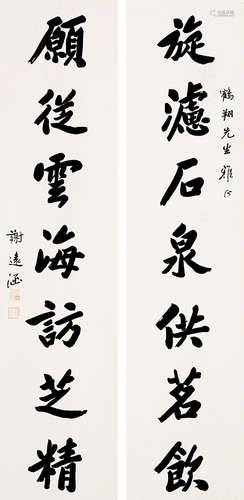 旋濾石泉供茗飲
鶴翔先生雅正
願從雲海訪芝精
謝遠涵